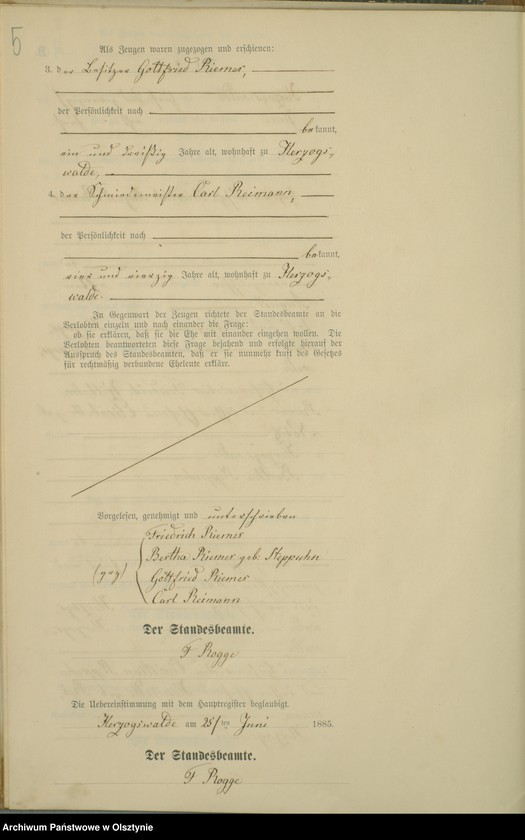 5
Als Zeugen waren zugezogen und erschienen:
3. der Besitzer Gottfried Riemer,
der Persönlichkeit nach
bekannt,
ein und dreißig Jahre alt, wohnhaft zu Herzogs-
walde,
4. der Schmiedemeister Carl Reimann,
der Persönlichkeit nach
bekannt,
vier und vierzig Jahre alt, wohnhaft zu Herzogs-
walde.
In Gegenwart der Zeugen richtete der Standesbeamte an die
Verlobten einzeln und nach einander die Frage:
ob sie erklären, daß sie die Ehe mit einander eingehen wollen. Die
Verlobten beantworteten diese Frage bejahend und erfolgte hierauf der
Ausspruch des Standesbeamten, daß er sie nunmehr kraft des Gesetzes
für rechtmäßig verbundene Eheleute erkläre.
Vorgelesen, genehmigt und unterschrieben
Friedrich Riemer
Bertha Riemer geb. Steppuhn
(gez)
Gottfried Riemer
Carl Reimann
Der Standesbeamte.
F Rogge
Die Uebereinstimmung mit dem Hauptregister beglaubigt.
Herzogswalde am 25/ten Juni 1885.
Der Standesbeamte.
F Rogge
Archiwum Państwowe w Olsztynie